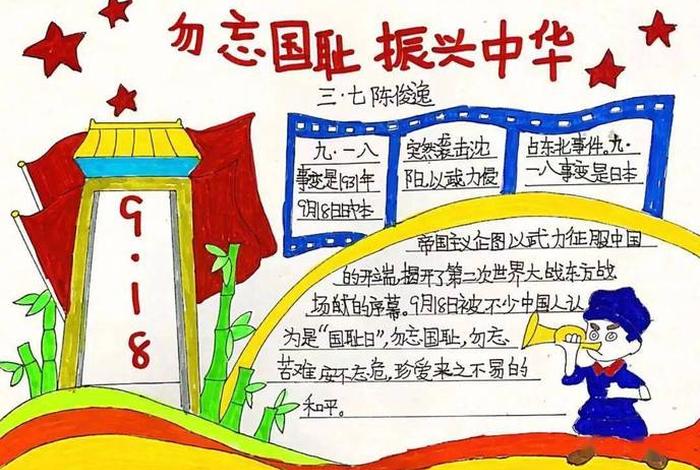 勿忘国耻 振兴中华
三·七 陈俊逸
9·18
九·一八
事变是1931年
9月18日日本
突然袭击沈
阳,以武力侵
占东北事件。九·
一八事变是日本
帝国主义企图以武力征服中国
的开端,揭开了第二次世界大战东方战
场献的序幕。9月18日被不少中国人认
为是“国耻日”,勿忘国耻,勿忘
苦难,安不忘危,珍爱来之不易的
和平。